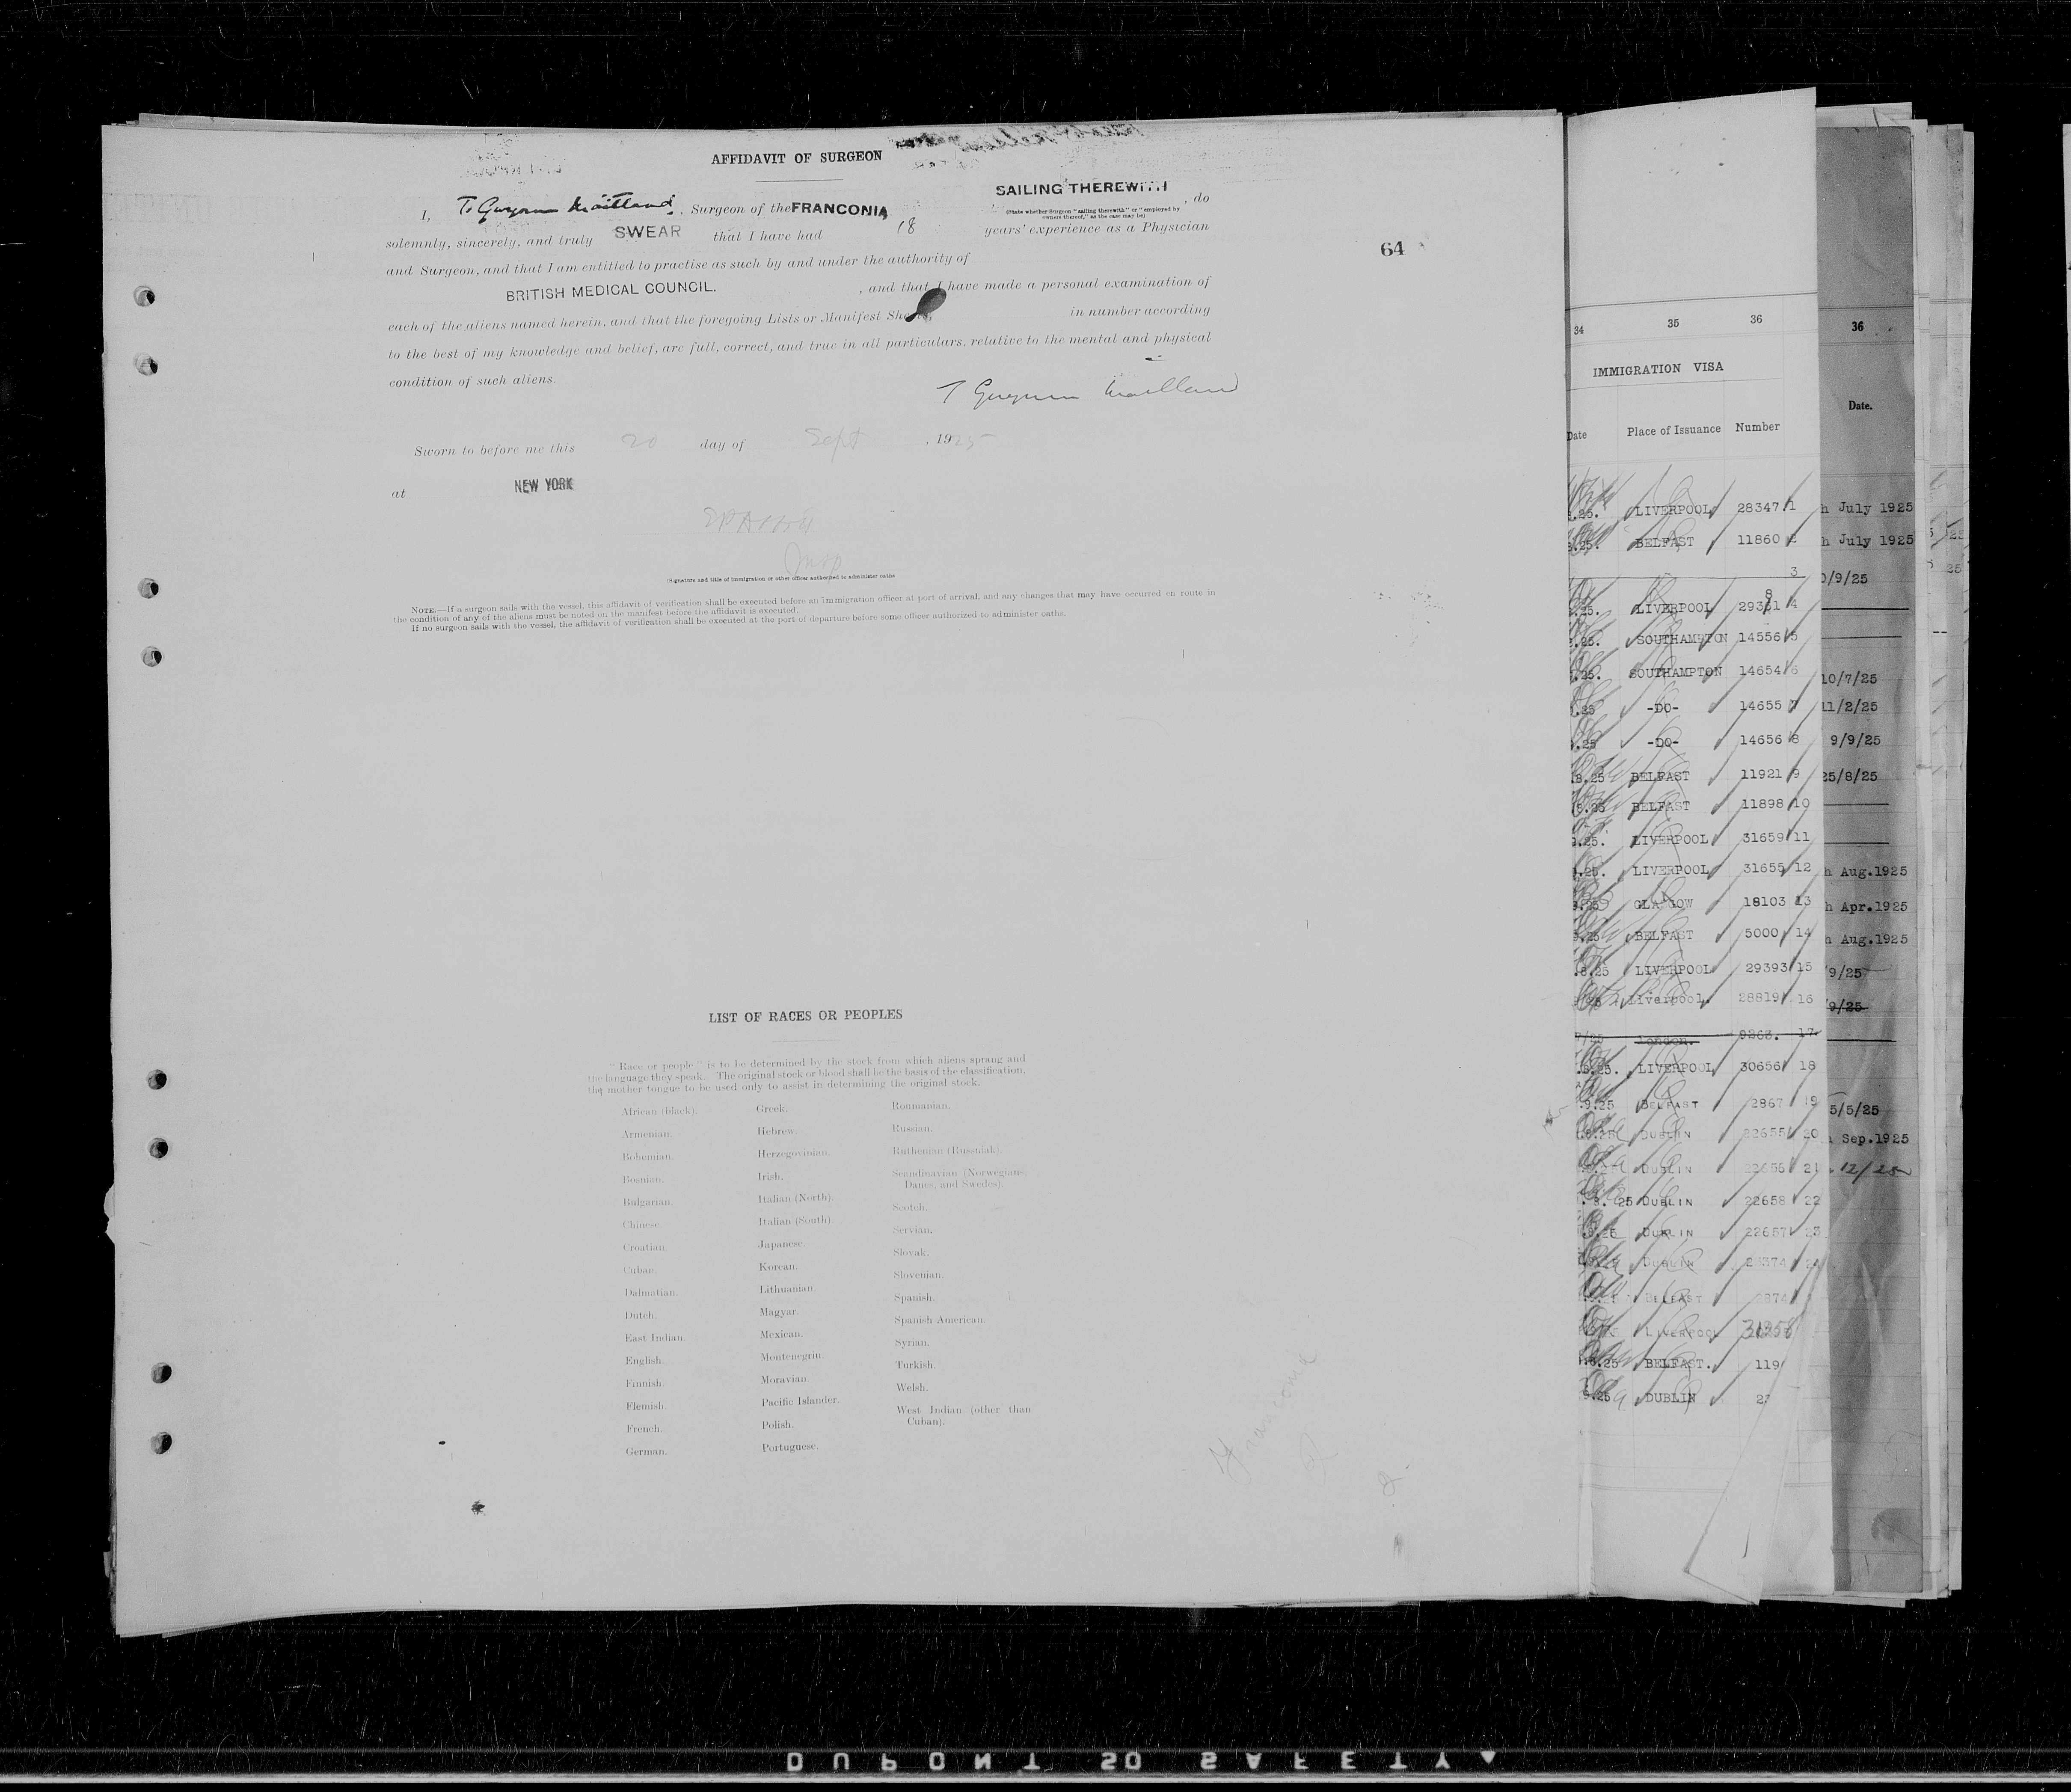 AFFIDAVIT OF SURGEON
I, T. Gwynne Maitland, Surgeon of the FRANCONIA SAILING THEREWITH, do
(State whether Surgeon "sailing therewith" or "employed by owners thereof," as the case may be)
solemnly, sincerely, and truly SWEAR that I have had 18 years' experience as a Physician
and Surgeon, and that I am entitled to practise as such by and under the authority of
BRITISH MEDICAL COUNCIL. , and that I have made a personal examination of
each of the aliens named herein, and that the foregoing Lists or Manifest Sheets, in number according
to the best of my knowledge and belief, are full, correct, and true in all particulars, relative to the mental and physical
condition of such aliens.
T Gwynne Maitland
Sworn to before me this 20 day of Sept , 1925
at NEW YORK
Insp
(Signature and title of immigration or other officer authorized to administer oaths
NOTE.—If a surgeon sails with the vessel, this affidavit of verification shall be executed before an immigration officer at port of arrival, and any changes that may have occurred en route in
the condition of any of the aliens must be noted on the manifest before the affidavit is executed.
If no surgeon sails with the vessel, the affidavit of verification shall be executed at the port of departure before some officer authorized to administer oaths.
64
LIST OF RACES OR PEOPLES
"Race or people" is to be determined by the stock from which aliens sprang and
the language they speak. The original stock or blood shall be the basis of the classification,
the mother tongue to be used only to assist in determining the original stock.
African (black).
Armenian.
Bohemian.
Bosnian.
Bulgarian.
Chinese.
Croatian.
Cuban.
Dalmatian.
Dutch.
East Indian.
English.
Finnish.
Flemish.
French.
German.
Greek.
Hebrew.
Herzegovinian.
Irish.
Italian (North).
Italian (South)
Japanese.
Korean.
Lithuanian.
Magyar.
Mexican.
Montenegrin.
Moravian.
Pacific Islander.
Polish.
Portuguese.
Roumanian.
Russian.
Ruthenian (Russniak).
Scandinavian (Norwegians,
Danes, and Swedes).
Scotch.
Servian.
Slovak.
Slovenian.
Spanish.
Spanish American.
Syrian.
Turkish.
Welsh.
West Indian (other than
Cuban).
Franconia
34 35 36
IMMIGRATION VISA
Date Place of Issuance Number
LIVERPOOL 28347 1
BELFAST 11860 2
3
LIVERPOOL 29381 4
SOUTHAMPTON 14556 5
SOUTHAMPTON 14654 6
-DO- 14655 7
-DO- 14656 8
BELFAST 11921 9
BELFAST 11898 10
LIVERPOOL 31659 11
LIVERPOOL 31655 12
GLASGOW 18103 13
BELFAST 5000 14
LIVERPOOL 29393 15
Liverpool. 28819 16
London. 9263. 17
LIVERPOOL 30656 18
BELFAST 2867 19
DUBLIN 22655 20
DUBLIN 22656 21
DUBLIN 22658 22
DUBLIN 22657 23
DUBLIN 24
BELFAST 2874
LIVERPOOL 31358
BELFAST. 119
DUBLIN
36
Date.
h July 1925
h July 1925
0/9/25
10/7/25
11/2/25
9/9/25
25/8/25
h Aug.1925
h Apr.1925
h Aug.1925
/9/25
/9/25
5/5/25
Sep.1925
12/25
DUPONT SAFETY